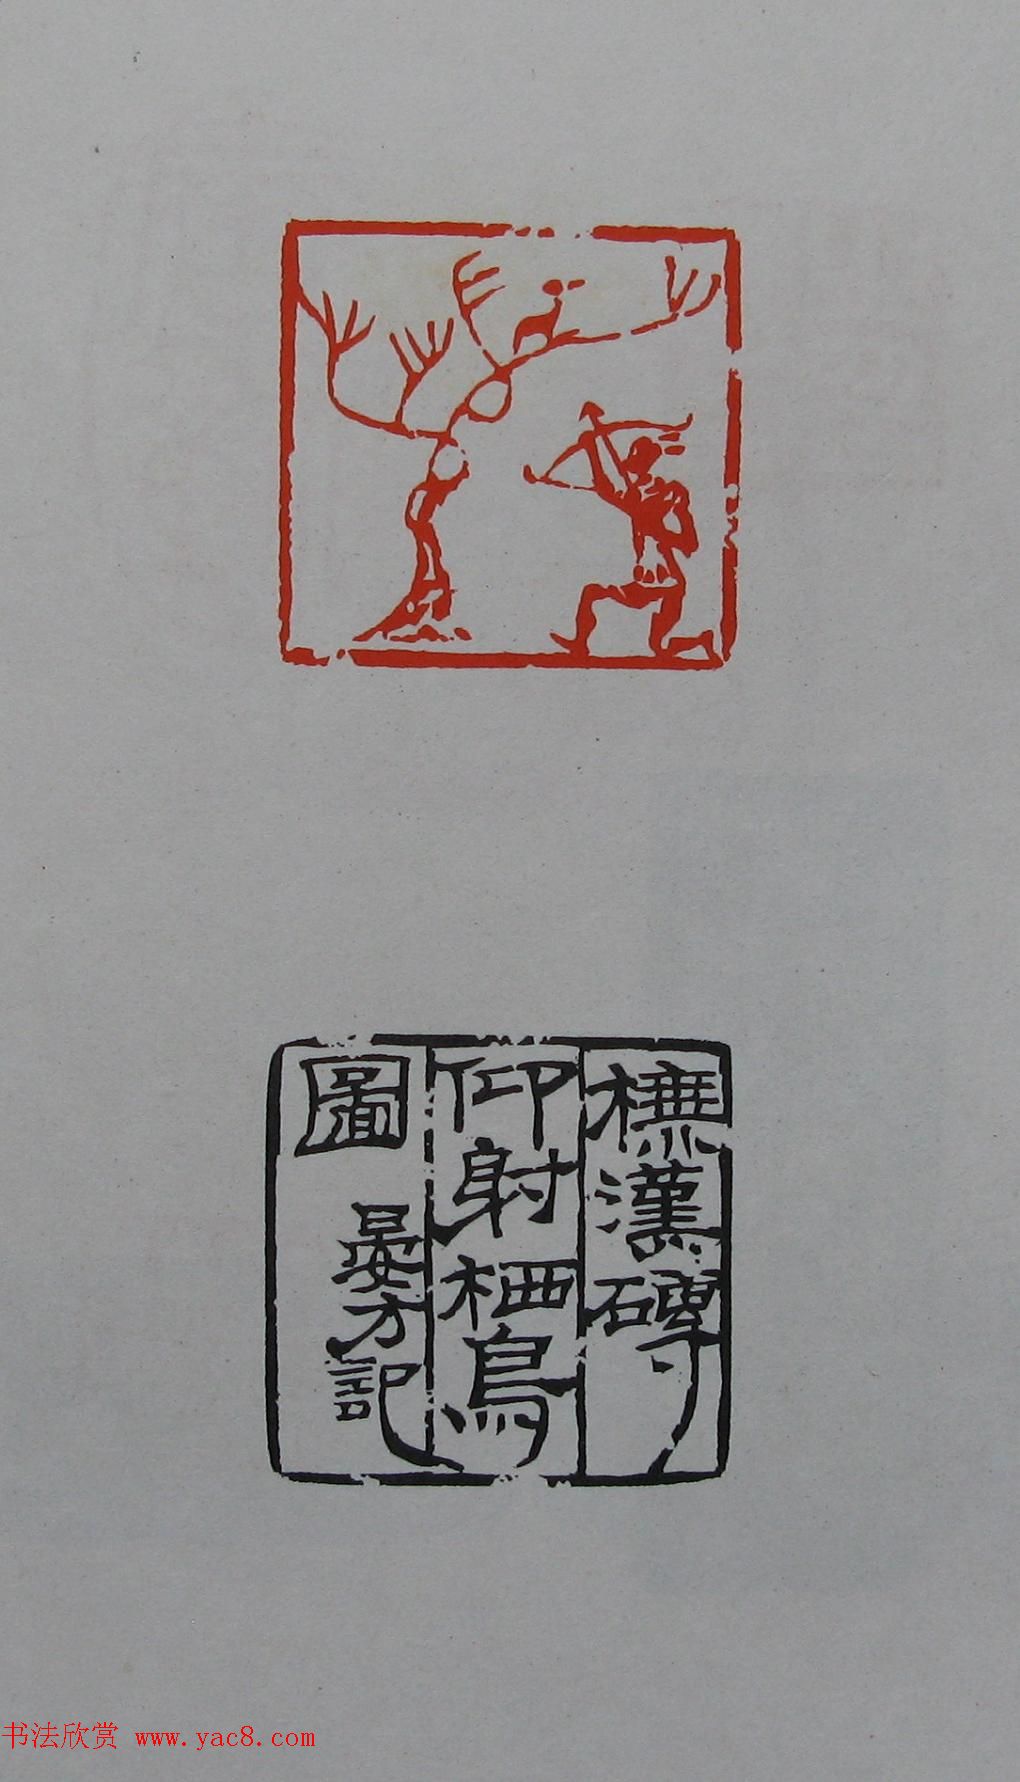 橅漢磚
仰射栖鳥
圖
晏方記
书法欣赏 www.yac8.com